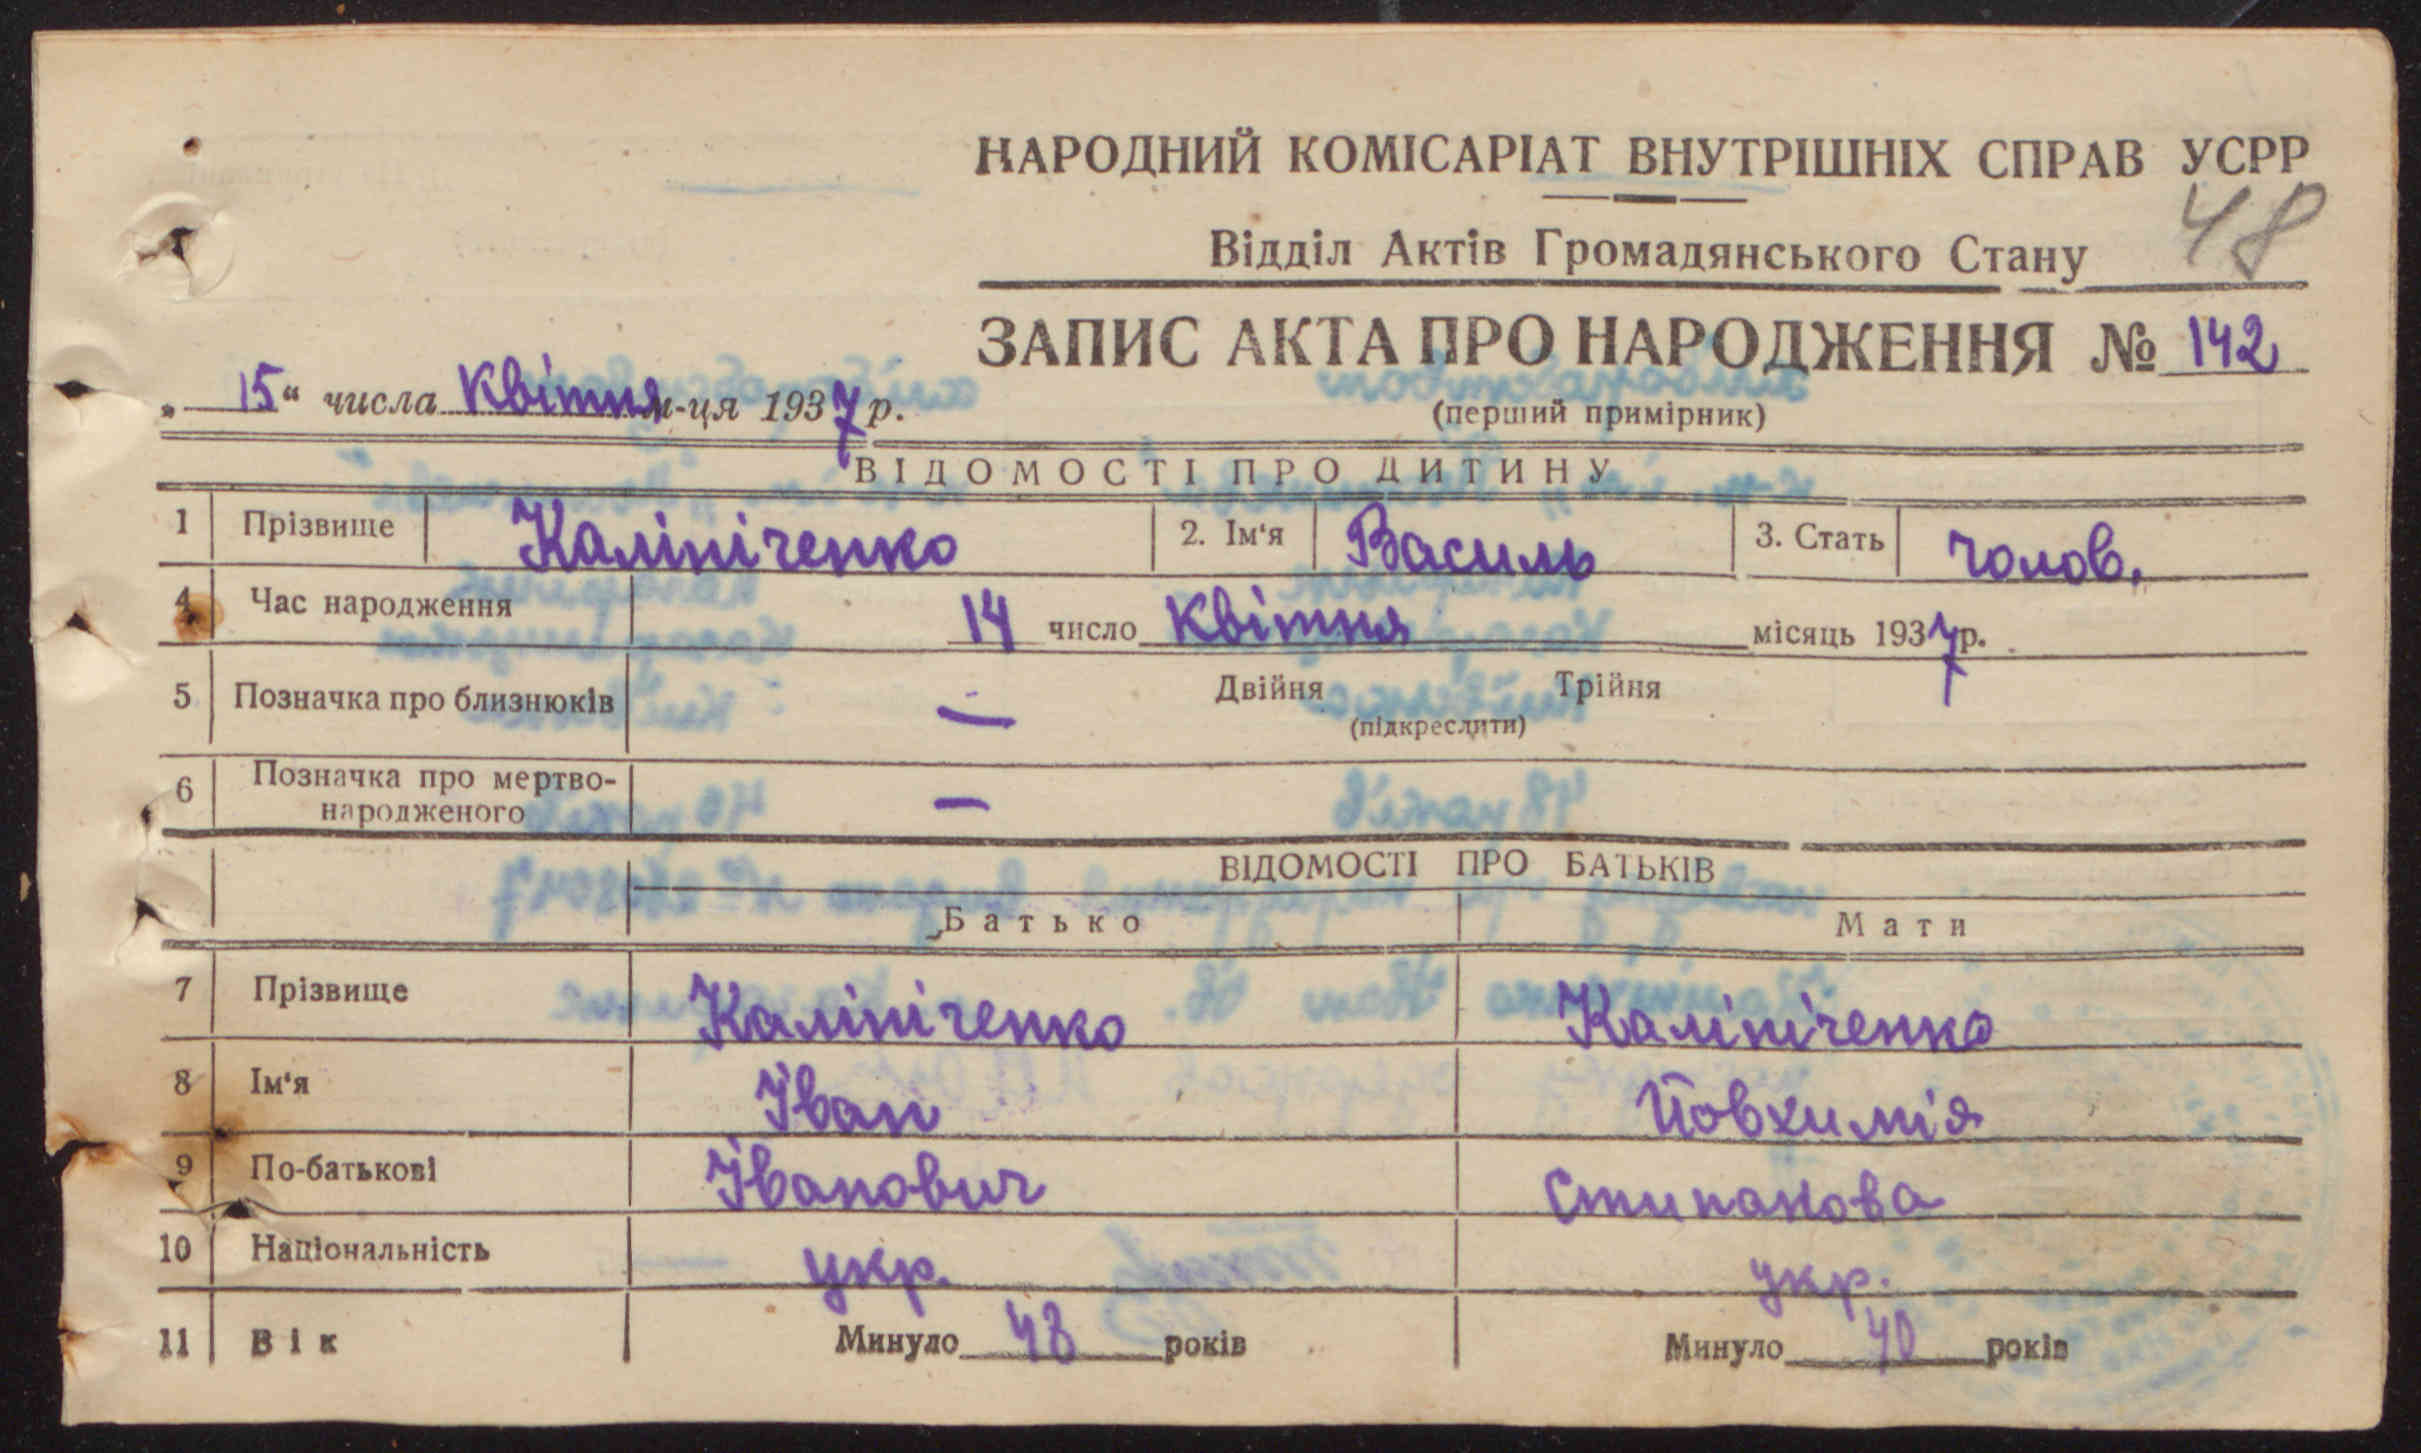 НАРОДНИЙ КОМІСАРІАТ ВНУТРІШНІХ СПРАВ УСРР
48
Відділ Актів Громадянського Стану
ЗАПИС АКТА ПРО НАРОДЖЕННЯ № 142
„15“ числа Квітня м-ця 1937 р.
(перший примірник)
ВІДОМОСТІ ПРО ДИТИНУ
1 Прізвище Калініченко 2. Ім'я Василь 3. Стать чолов.
4 Час народження 14 число Квітня місяць 1937 р.
5 Позначка про близнюків — Двійня Трійня
(підкреслити)
6 Позначка про мертво-
народженого —
ВІДОМОСТІ ПРО БАТЬКІВ
Батько Мати
7 Прізвище Калініченко Калініченко
8 Ім'я Іван Йовхимія
9 По-батькові Іванович Стипанова
10 Національність укр. укр.
11 Вік Минуло 48 років Минуло 40 років